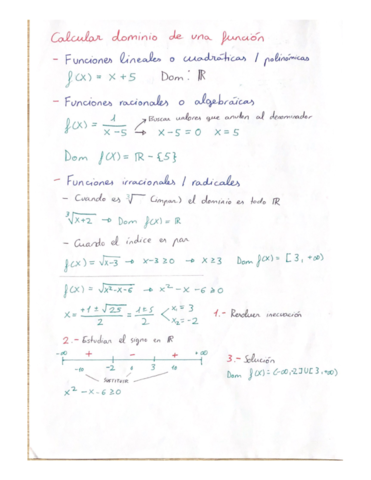 Calcular dominio de una función
- Funciones lineales o cuadráticas / polinómicas
f(x) = x + 5 Dom: ℝ
- Funciones racionales o algebráicas
f(x) = 1 / x - 5 → Buscar valores que anulen al denominador
→ x - 5 = 0 x = 5
Dom f(x) = ℝ - {5}
- Funciones irracionales / radicales
- Cuando es √ (impar) el dominio es todo ℝ
³√x+2 → Dom f(x) = ℝ
- Cuando el índice es par
f(x) = √x-3 → x-3 ≥ 0 → x ≥ 3 Dom f(x) = [3, +∞)
f(x) = √x²-x-6 → x² - x - 6 ≥ 0
x = +1 ± √25 / 2 = 1 ± 5 / 2 x₁ = 3 x₂ = -2
1.- Resolver inecuación
2.- Estudiar el signo en ℝ
-∞ + - + +∞
-10 -2 1 3 10
Sustituir
x² - x - 6 ≥ 0
3.- Solución
Dom f(x): (-∞, -2] U [3, +∞)